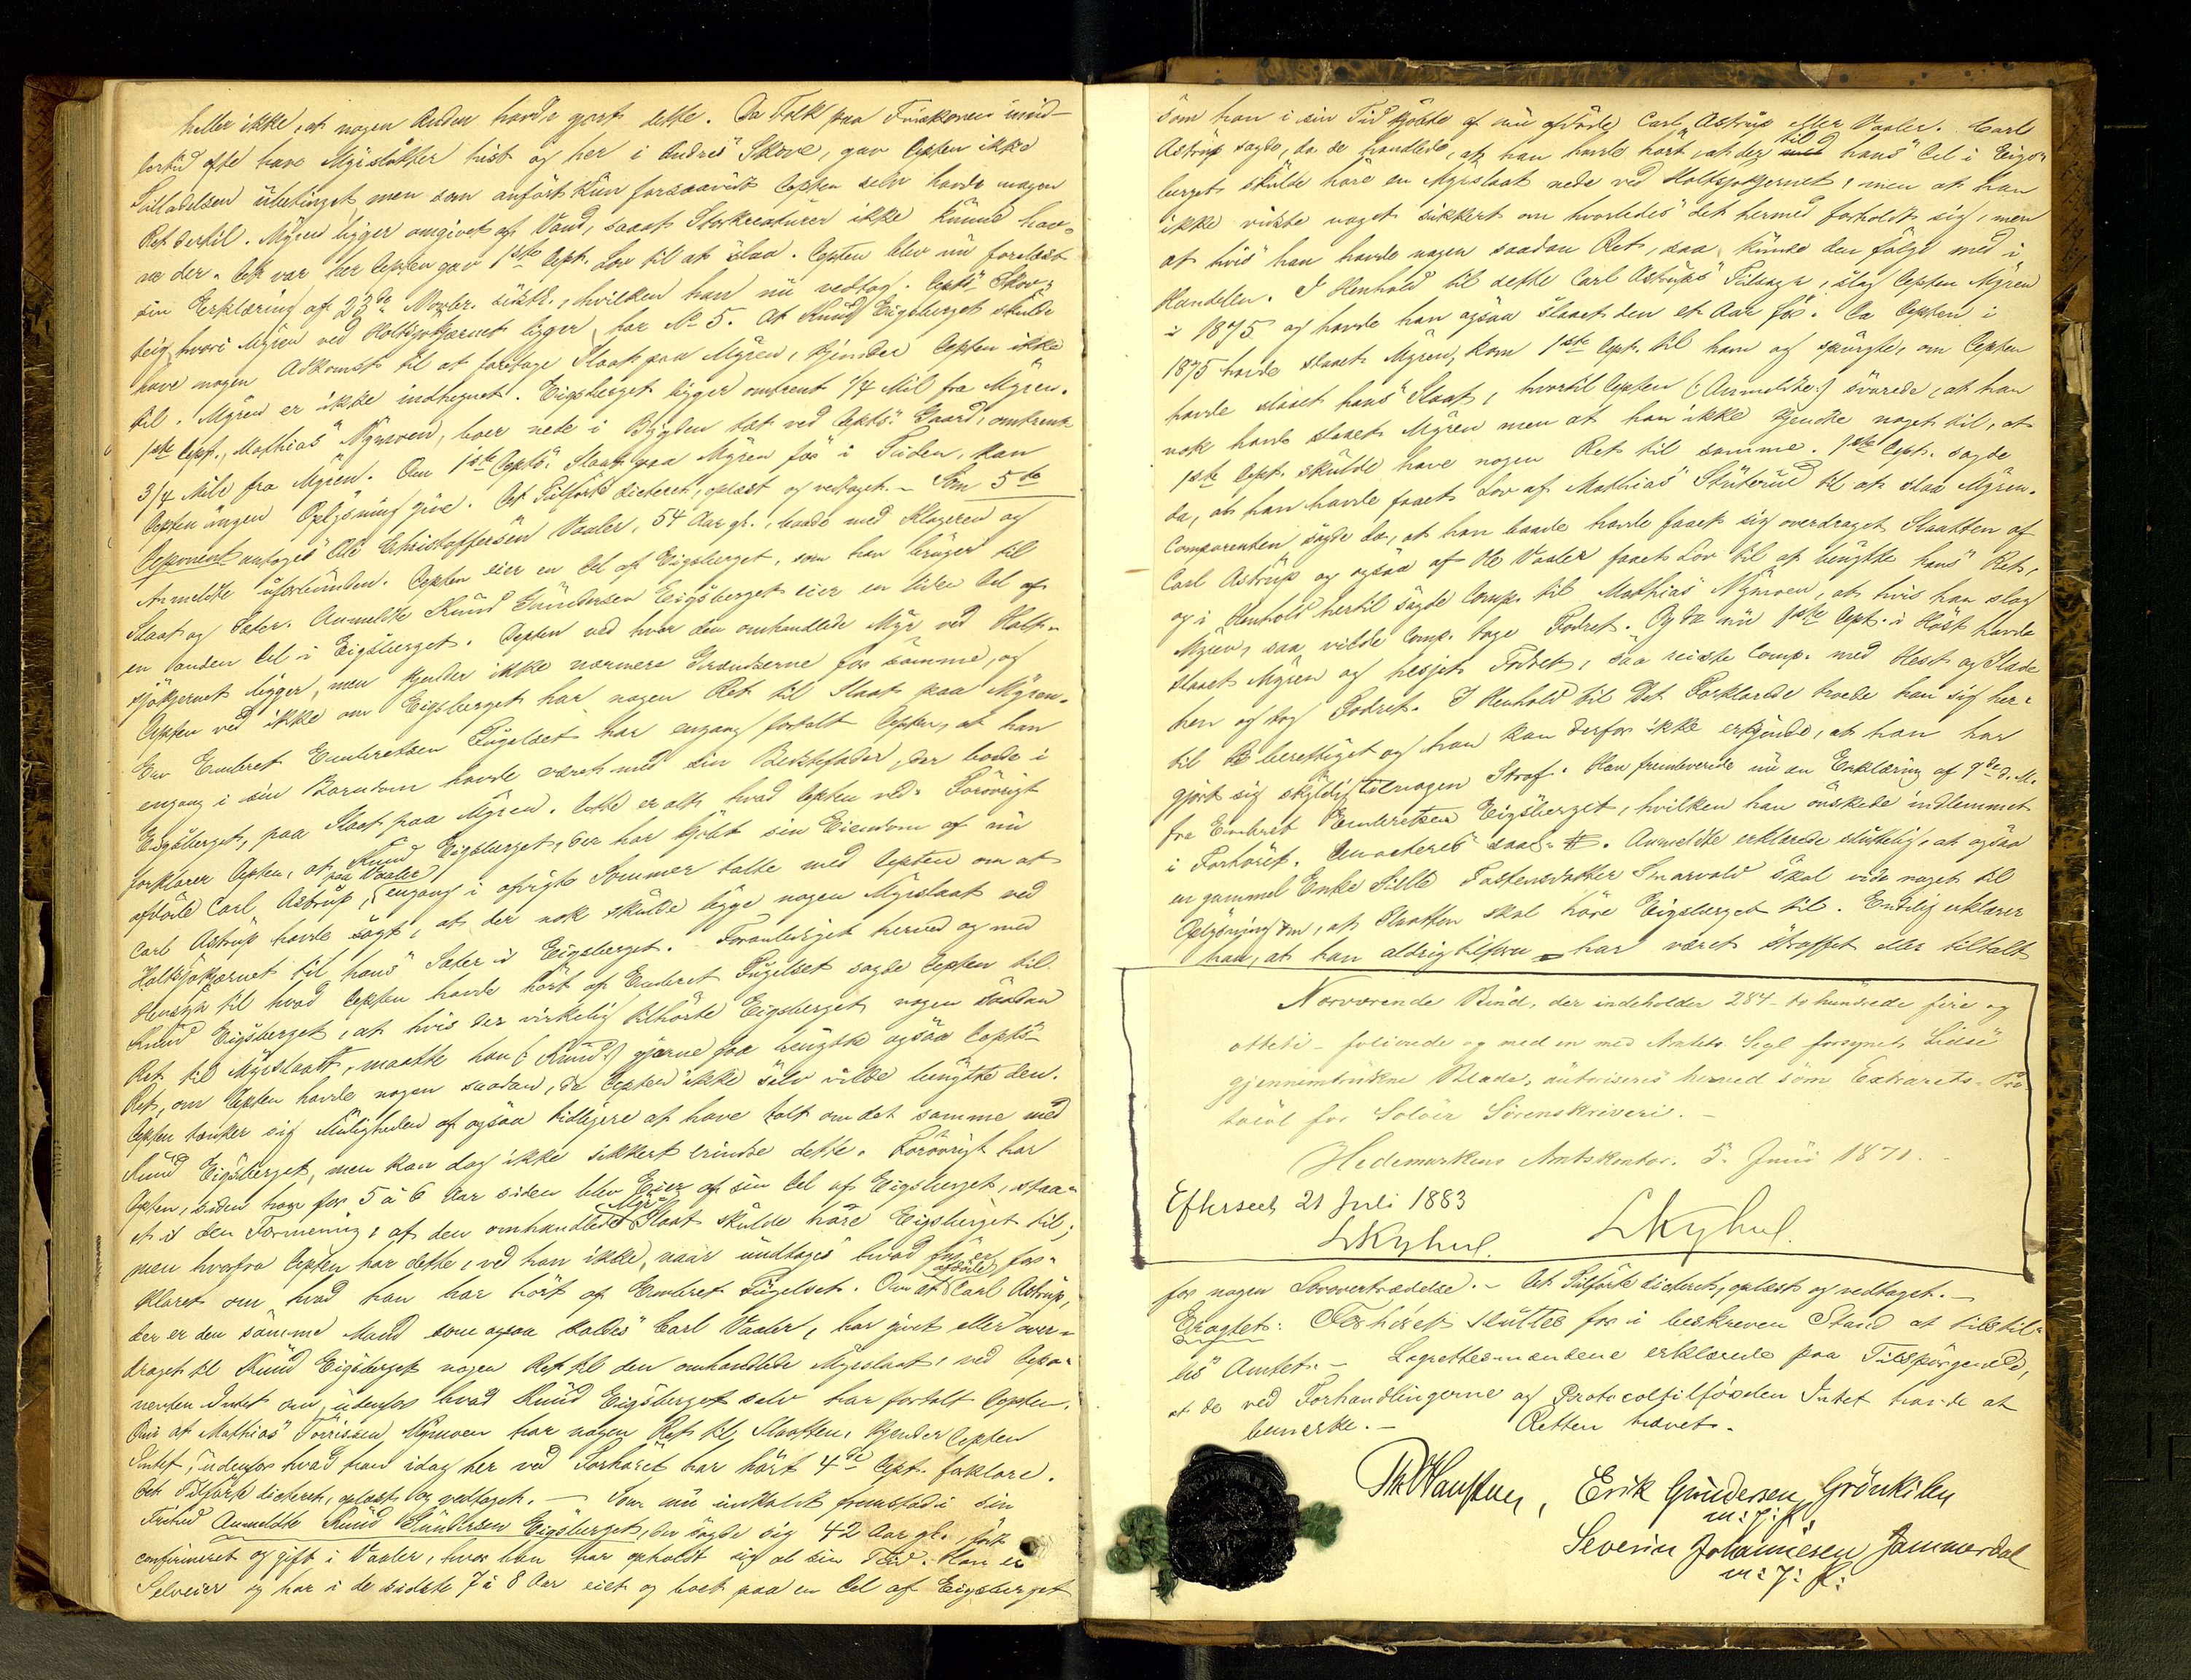 heller ikke, at nogen Anden havde gjort dette. Da Folk paa Finskoven imid-
lertid ofte have Myrslåtter hist og her i Andres Skove, gav Depten ikke
Tilladelsen ubetinget men som anført kun forsaavidt Depten selv havde nogen
Ret dertil. Myren ligger omgivet af Vand, saaat Storkreaturer ikke kunde hav-
ne der. Det var her Depten gav 1ste Dept. Lov til at slaa. Depten blev nu forelæst
sin Erklæring af 23de Novbr. sidstl., hvilken han nu vedtog. Depts Skov-
teig, hvori Myren ved Holtsjøkjernet ligger, har No 5. At Knud Eigsberget skulde
have nogen Adkomst til at foretage Slaat paa Myren, kjender Depten ikke
til. Myren er ikke indhegnet. Eigsberget ligger omtrent 1/4 Mil fra Myren.
1ste Dept., Mathias Nymoen, boer nede i Bygden tæt ved Depts. Gaard, omtrent
3/4 Mil fra Myren. Om 1ste Depts. Slaat paa Myren før i Tiden, kan
Depten ingen Oplysning give. Det Tilførte dicteret, oplæst og vedtaget. - Som 5te
Deponent antoges Ole Christoffersen Vaaler, 54 Aar gl., baade med Klageren og
Anmeldte uforbunden. Depten eier en Del af Eigsberget, som han bruger til
Slaat og Sæter. Anmeldte Knud Gundersen Eigsberget eier en liden Del af
en anden Del i Eigsberget. Depten ved hvor den omhandlede Myr ved Holt-
sjøkjernet ligger, men kjender ikke nærmere Grændserne for samme, og
Depten ved ikke om Eigsberget har nogen Ret til Slaat paa Myren.
En Embret Embretsen Fugelset har engang fortalt Depten, at han
engang i sin Barndom havde været med sin Bedstefader, der boede i
Eigsberget, paa Slaat paa Myren. Dette er alt hvad Depten ved. Forøvrigt
forklarer Depten, at Knud Eigsberget, der har kjøbt sin Eiendom af nu
afdøde Carl Astrup, paa Vaaler, engang i afvigte Sommer talte med Depten om at
Carl Astrup havde sagt, at der nok skulde ligge nogen Myrslaat ved
Holtsjøkjernet til hans Sæter i Eigsberget. Foranlediget herved og med
Hensyn til hvad Depten havde hørt af Embret Fugelset sagde Depten til
Knud Eigsberget, at hvis der virkelig tilhørte Eigsberget nogen saadan
Ret til Myrslaatt, maatte han (: Knud :) gjerne faa benytte ogsaa Depts
Ret, om Depten havde nogen saadan, da Depten ikke selv vilde benytte den.
Depten tænker sig Muligheden af ogsaa tidligere at have talt om det samme med
Knud Eigsberget, men kan dog ikke sikkert erindre dette. Forøvrigt har
Depten, siden han for 5 à 6 Aar siden blev Eier af sin Del af Eigsberget, staa-
et i den Formening, at den omhandlede Myrslaat skulde høre Eigsberget til;
men hvorfra Depten har dette, ved han ikke, naar undtages hvad før er for-
klaret om hvad han har hørt af Embret Fugelset. Om at afdøde Carl Astrup,
der er den samme Mand som ogsaa kaldes Carl Vaaler, har givet eller over-
draget til Knud Eigsberget nogen Ret til den omhandlede Myrslaat, ved Depo-
nenten Intet om, udenfor hvad Knud Eigsberget selv har fortalt Depten.
Om at Mathias Nymoen har nogen Ret til Slaatten, kjender Depten
Intet, udenfor hvad han idag her ved Forhøret har hørt 4de Dept. forklare.
Det Tilførte dicteret, oplæst og vedtaget. - Som nu indkaldt fremstod i sin
Frihed Anmeldte Knud Gundersen Eigsberget, der sagde sig 42 Aar gl., født
confirmeret og gift i Vaaler, hvor han har opholdt sig al sin Tid. Han er
Selveier og har i de sidste 7 à 8 Aar eiet og boet paa en Del af Eigsberget
som han i sin Tid kjøbte af nu afdøde Carl Astrup eller Vaaler. Carl
Astrup sagde, da de handlede, at han havde hørt, at der til hans Del i Eigs-
berget skulde høre en Myrslaat nede ved Holtsjøkjernet, men at han
ikke vidste noget sikkert om hvorledes det hermed forholdt sig, men
at hvis han havde nogen saadan Ret, saa kunde den følge med i
Handelen. I Henhold til dette Carl Astrups Tilsagn, slog Depten Myren
i 1875 og havde han ogsaa slaaet den et Aar før. Da Depten i
1875 havde slaaet Myren, kom 1ste Dept. til ham og spurgte, om Depten
havde slaaet hans Slaat, hvortil Depten (: Anmeldte :) svarede, at han
nok havde slaaet Myren men at han ikke kjendte noget til, at
1ste Dept. skulde have nogen Ret til samme. 1ste Dept. sagde
da, at han havde faaet Lov af Mathias Stuterud til at slaa Myren.
Comparenten sagde da, at han baade havde faaet sig overdraget Slaatten af
Carl Astrup og ogsaa af Ole Vaaler faaet Lov til at benytte hans Ret,
og i Henhold hertil sagde Comp. til Mathias Nymoen, at hvis han slog
Myren, saa vilde Comp. tage Fodret. Og da nu 1ste Dept. i Høst havde
slaaet Myren og hesjet Fodret, saa reiste Comp. med Hest og Slæde
hen og tog Fodret. I Henhold til det Forklarede troede han sig her-
til berettiget og han kan derfor ikke erkjende, at han har
gjort sig skyldig til nogen Straf. Han fremleverede nu en Erklæring af 9de d. M.
fra Embret Embretsen Eigsberget, hvilken han ønskede indlemmet
i Forhøret. Anmeldte erklærede sluttelig, at ogsaa
en gammel Enke Sille Tostensdatter Smarvald skal vide noget til
Oplysning om, at Slaatten skal høre Eigsberget til. Endelig erklærer
han, at han aldrig tilforn har været straffet eller tiltalt
Nærværende Bind, der indeholder 284 - to hundrede fire og
otteti - folierede og med en med Amtets Segl forsynet Lidse
gjennemtrukne Blade, autoriseres herved som Extrarets-Pro-
tocol for Solør Sorenskriveri. -
Hedemarkens Amtskontor. 5. Juni 1871.
Efterseet 21 Juli 1883
for nogen Lovovertrædelse. - Det Tilførte dicteret, oplæst og vedtaget. -
Eragtet: Forhøret sluttes for i beskreven Stand at tilstil-
les Amtet. - Lagrettesmændene erklærede paa Tilspørgende,
at de ved Forhandlingerne og Protocoltilførslen Intet havde at
bemærke. - Retten hævet.
Erik Gundersen Grønkilen
m: f: P:
Severin Johannesen Jammerdal
m: f: P: